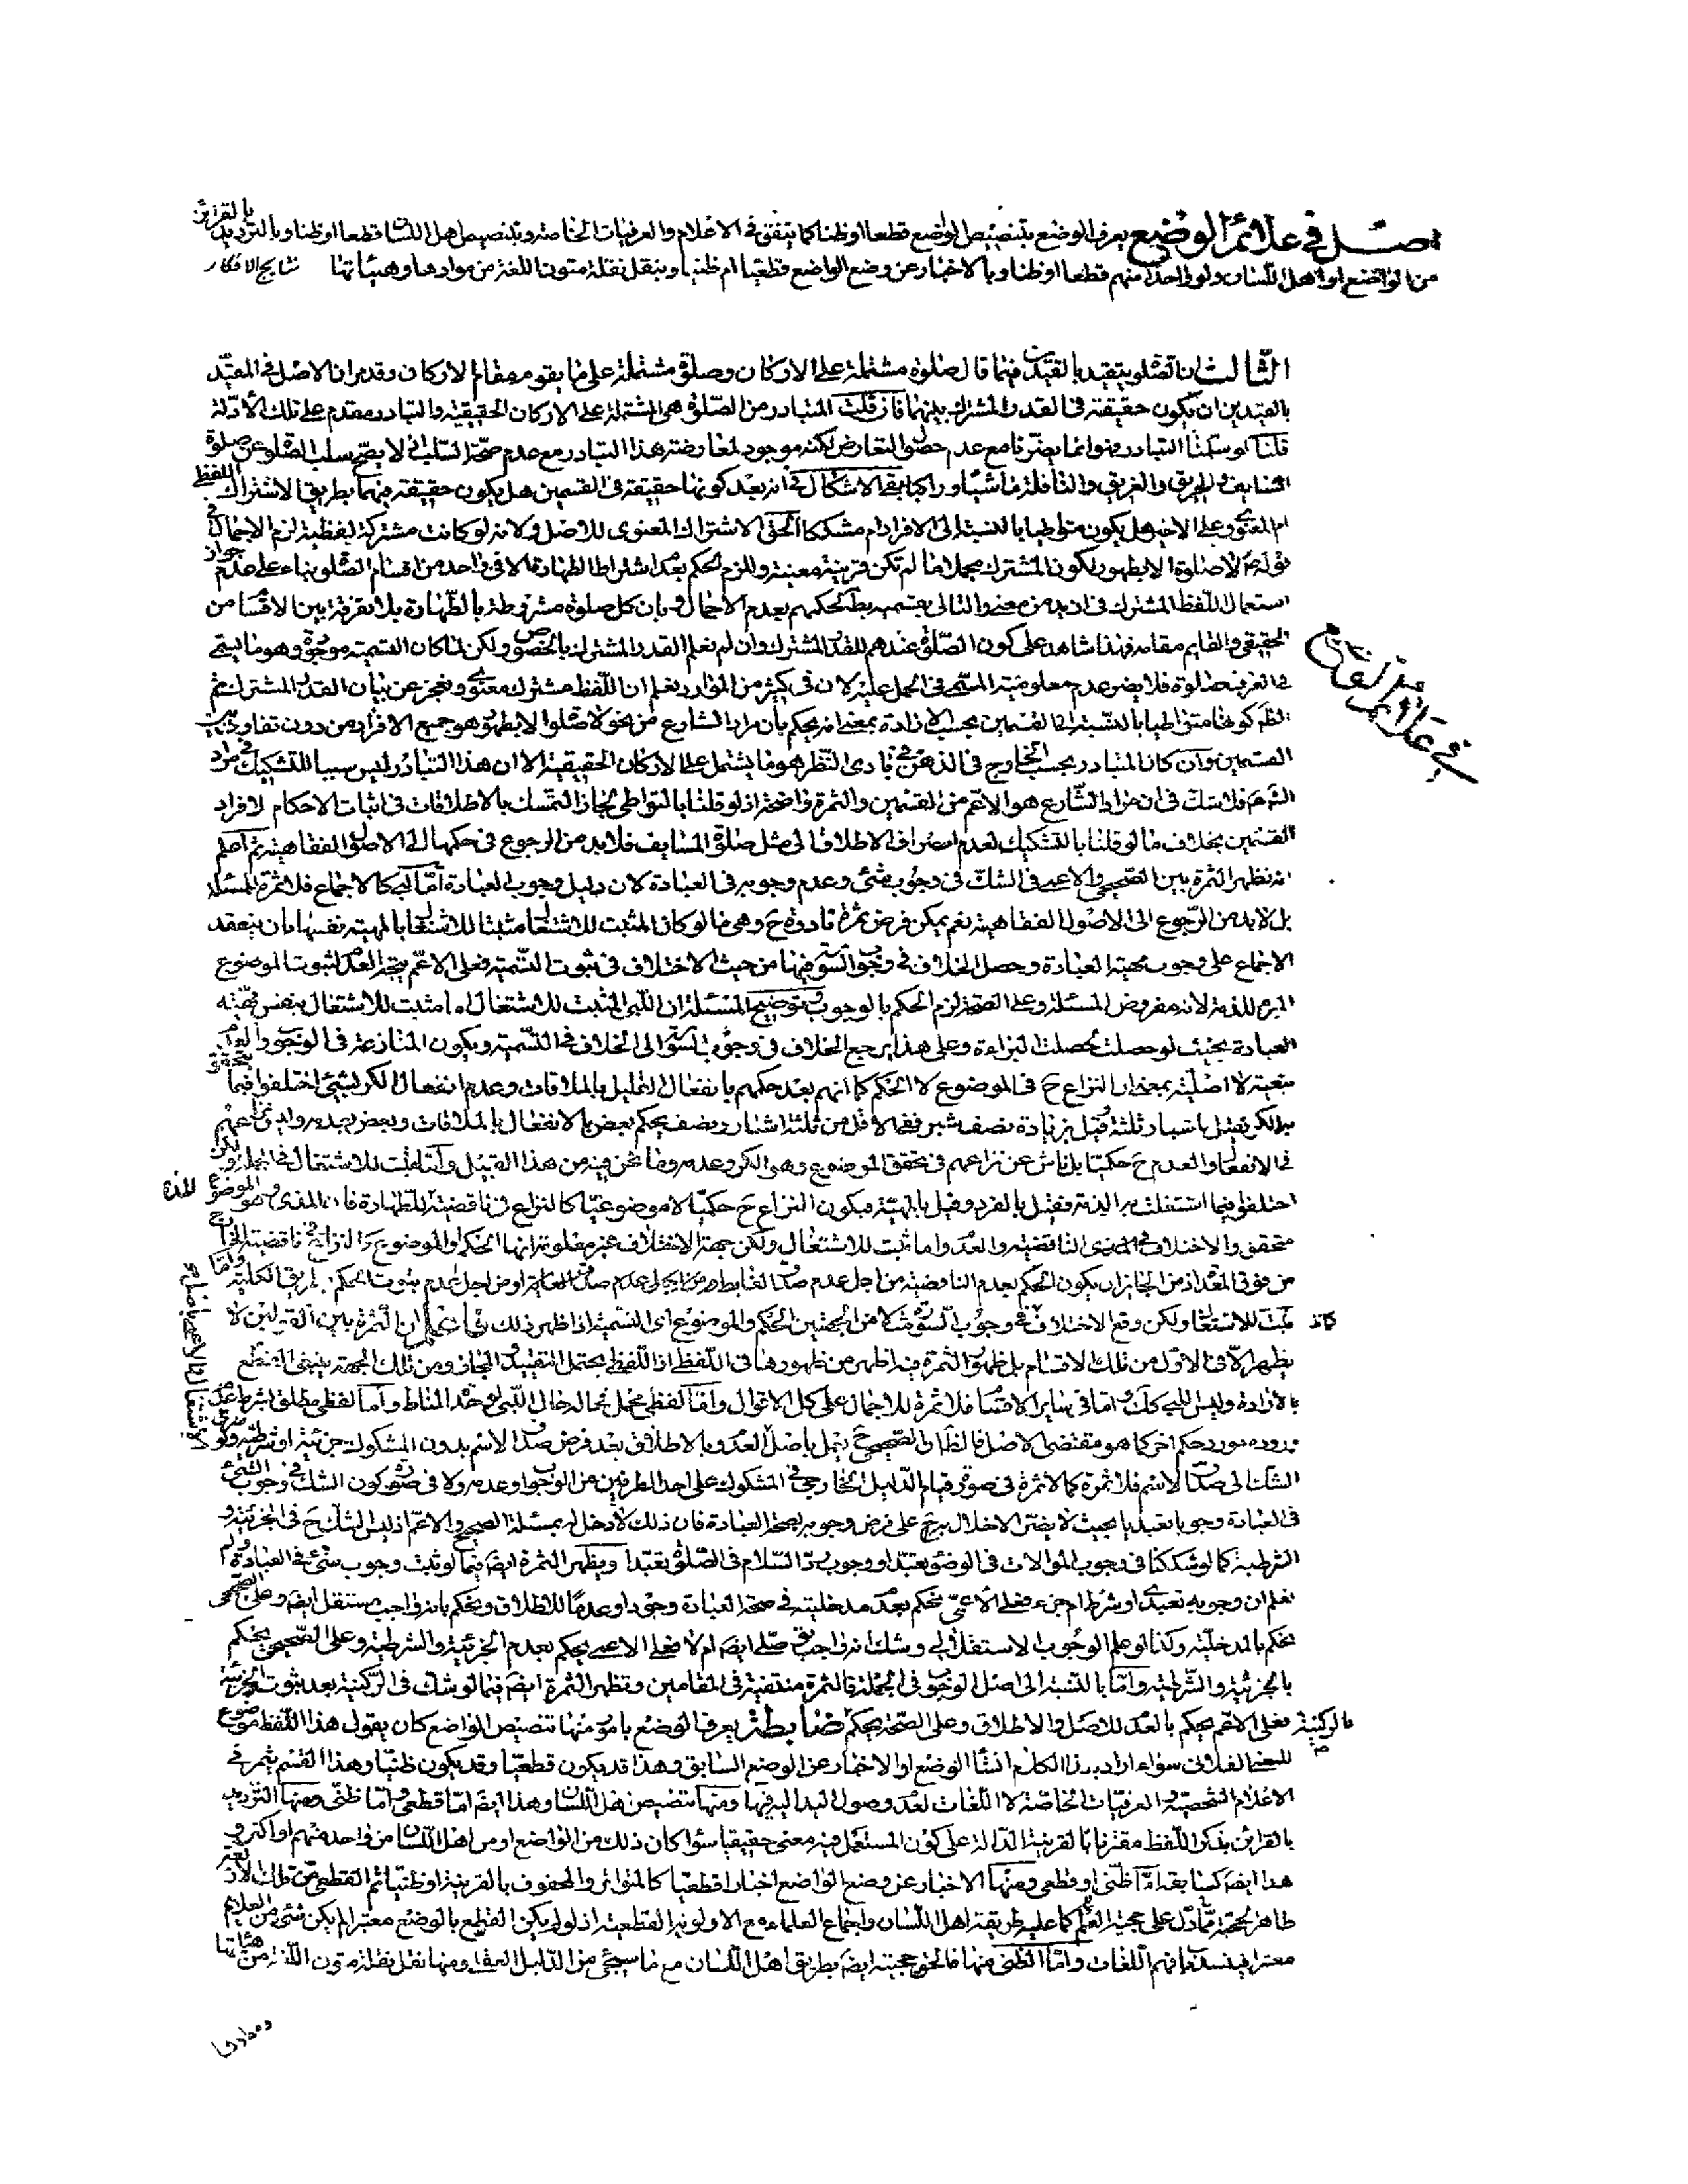 اصل في علائم الوضع يعرف الوضع بتنصيص الواضع قطعا او ظنا كما يتفق في الاعلام والعرفيات الخاصة وبتنصيص اهل اللسان قطعا او ظنا وبالترديد بالقرائن
من الواضع او اهل اللسان ولو واحدا منهم قطعا او ظنا وبالاخبار عن وضع الواضع قطعيا ام ظنيا وبنقل نقلة متون اللغة من موادها وهيئاتها نتايج الافكار
الثالث ان الصلوة يتقيد بالقيدين فيما قال صلوة مشتملة على الاركان وصلوة مشتملة على ما يقوم مقام الاركان وقد مر ان الاصل في المقيد
بالقيدين ان يكون حقيقة في القدر المشترك بينهما فان قلت المتبادر من الصلوة هي المشتملة على الاركان الحقيقية والتبادر مقدم على تلك الادلة
قلنا لو سلمنا التبادر فهو انما يضرنا مع عدم حصول التعارض لكنه موجود لمعارضة هذا التبادر مع عدم صحة السلب اذ لا يصح سلب الصلوة عن صلوة
المسايف والحريق والغريق والنافلة ماشيا وراكبا بقي الاشكال في انه بعد كونها حقيقة في القسمين هل يكون حقيقة فيهما بطريق الاشتراك اللفظي
ام المعنوي وعلى الاخير هل يكون متواطيا بالنسبة الى الافراد ام مشككا الحق الاشتراك المعنوي للاصل ولانه لو كانت مشتركة لفظية لزم الاجمال في
قوله ع لا صلوة الا بطهور لكون المشترك مجملا ما لم تكن قرينة معينة وللزم الحكم بعدم اشتراط الطهارة الا في واحد من اقسام الصلوة بناء على عدم جواز
استعمال اللفظ المشترك في ازيد من معنى والتالي بقسميه بط لحكمهم بعدم الاجمال وبان كل صلوة مشروطة بالطهارة بلا تفرقة بين الاقسام من
الحقيقي والقايم مقامه فهذا شاهد على كون الصلوة عندهم للقدر المشترك وان لم نعلم القدر المشترك بالخصوص ولكن لما كان التسمية موجودة وهو ما يسمى
في العرف صلوة فلا يضر عدم معلومية المسمى في الحمل عليه لان في كثير من الموارد نعلم ان اللفظ مشترك معنوي ونعجز عن بيان القدر المشترك ثم
الظم كونها متواطيا بالنسبة الى القسمين بحسب الارادة بمعنى انه يحكم بان مراد الشارع من نحو لا صلوة الا بطهور هو جميع الافراد من دون تفاوت بين
القسمين وان كان المتبادر بحسب الخارج في الذهن في بادي النظر هو ما يشتمل على الاركان الحقيقية الا ان هذا التبادر ليس سببا للتشكيك في مراد
الشرع فلا شك في ان مراد الشارع هو الاعم من القسمين والثمرة واضحة اذ لو قلنا بالتواطي لجاز التمسك بالاطلاقات في اثبات الاحكام لافراد
القسمين بخلاف ما لو قلنا بالتشكيك لعدم انصراف الاطلاق الى مثل صلوة المسايف فلا بد من الرجوع في حكمها الى الاصول الفقاهية ثم اعلم
انه تظهر الثمرة بين الصحيحي والاعمي في الشك في وجوب شئ وعدم وجوبه في العبادة كان دليل وجوب العبادة اما لبيا كالاجماع فلا ثمرة للمسئلة
بل لا بد من الرجوع الى الاصول الفقاهية نعم يمكن فرض ثمرة نادرة ح وهي ما لو كان المثبت للاشتغال مثبتا للاشتغال بالمهية نفسها بان ينعقد
الاجماع على وجوب مهية العبادة وحصل الخلاف في وجوب السورة فيها من حيث الاختلاف في ثبوت التسمية فعلى الاعم يجري العدم لثبوت الموضوع
المبرء للذمة لانه مفروض المسئلة وعلى الصحة لزم الحكم بالوجوب وتوضيح المسئلة ان اللبي المثبت للاشتغال اما مثبت للاشتغال بنفس مهية
العبادة بحيث لو حصلت لحصلت البراءة وعلى هذا يرجع الخلاف في وجوب السورة الى الخلاف في التسمية ويكون المنازعة في الوجوب والعدم
تبعية لا اصلية بمعنى ان النزاع ح في الموضوع لا الحكم كما انهم بعد حكمهم بانفعال القليل بالملاقات وعدم انفعال الكر بشئ اختلفوا فيما يتحقق
به الكر فقيل باشبار ثلثة وقيل بزيادة نصف شبر ففي الاقل من ثلثة اشبار ونصف يحكم بعض بالانفعال بالملاقات وبعض بعدمه وليس نزاعهم
في الانفعال والعدم ح حكميا بل ناش عن نزاعهم في تحقق الموضوع وهو الكر وعدمه وما نحن فيه من هذا القبيل واما مثبت للاشتغال في الجملة ولكن
اختلفوا فيما اشتغلت به الذمة فقيل بالفرد وقيل بالمهية فيكون النزاع ح حكميا لا موضوعيا كالنزاع في ناقضية المذي للطهارة فان المذي وهو الموضوع
متحقق والاختلاف في المذي الناقضية والعدم واما مثبت للاشتغال ولكن جهة الاختلاف غير معلومة انها الحكم او الموضوع
ثبت الاشتغال ولكن وقع الاختلاف في وجوب السورة مثلا من الجهتين الحكم والموضوع اي التسمية اذا ظهر ذلك فاعلم ان الثمرة بين القولين لا
يظهر الا في الاول من تلك الاقسام بل ظهور الثمرة فيه اظهر من ظهورها في اللفظ اذ اللفظ يحتمل التقييد والمجاز ومن تلك الجهة ينبغي القطع
بالارادة وليس اللبي كك اما في ساير الاقسام فلا ثمرة للاجمال على كل الاقوال واما لفظي مجمل فحاله حال اللبي لوحدة المناط واما لفظي مطلق بشرط عدم
وروده مورد حكم اخر كما هو مقتضى الاصل فالظان الصحيحي ح يعمل باصل العدم وبالاطلاق بعد فرض صدق الاسم بدون المشكوك جزئية او شرطية ولو
الشك في صدق الاسم فلا ثمرة كما لا ثمرة في صورة قيام الدليل الخارجي في المشكوك على احد الطرفين من الوجوب او عدمه ولا في صورة كون الشك في وجوب الشئ
في العبادة وجوبا تعبديا بحيث لا يضر الاخلال به ح على فرض وجوبه بصحة العبادة فان ذلك لا دخل له بمسئلة الصحيح والاعم اذ ليس الشك ح في الجزئية و
الشرطية كما لو شككنا في وجوب الموالات في الوضوء تعبدا او وجوب رد السلام في الصلوة تعبدا ويظهر الثمرة ايضا فيما لو ثبت وجوب شئ في العبادة ولم
نعلم ان وجوبه تعبدي او شرط ام جزء فعلى الاعمي نحكم بعدم مدخليته في صحة العبادة وجودا وعدما للاطلاق ونحكم بانه واجب مستقل ايضا وعلى الصحيحي
نحكم بالمدخلية وكذا لو علم الوجوب الاستقلالي وشك انه واجب
بالجزئية والشرطية واما بالنسبة الى اصل الوجوب في الجملة فالثمرة منتفية في المقامين وتظهر الثمرة ايضا فيما لو شك في الركنية بعد ثبوت الجزئية
فعلى الاعم يحكم بالعدم للاصل والاطلاق وعلى الصحة يحكم بالركنية ضابطة يعرف الوضع بامور منها تنصيص الواضع كان يقول هذا اللفظ موضوع
للمعنى الفلاني سواء اراد بهذا الكلام انشاء الوضع او الاخبار عن الوضع السابق وهذا قد يكون قطعيا وقد يكون ظنيا وهذا القسم يثمر في
الاعلام الشخصية والعرفيات الخاصة لا اللغات لعدم وصول اليد اليه فيها ومنها تنصيص اهل اللسان وهذا ايضا اما قطعي واما ظني ومنها الترديد
بالقرائن بذكر اللفظ مقترنا بالقرينة الدالة على كون المستعمل فيه معنى حقيقيا سواء كان ذلك من الواضع او من اهل اللسان من واحد منهم او اكثر و
هذا ايضا كسابقه اما ظني او قطعي ومنها الاخبار عن وضع الواضع اخبارا قطعيا كالمتواتر والمحفوف بالقرينة او ظنيا ثم القطعي من تلك الامور
ظاهر الحجية مما دل على حجية العلم كما عليه طريقة اهل اللسان واجماع العلماء مع الاولوية القطعية اذ لو لم يكن القطع بالوضع معتبرا لم يكن شئ من العلايم
معتبرا فينسد باب فهم اللغات واما الظني منها فالحق حجيته ايضا بطريق اهل اللسان مع ما سيجئ من الدليل العقلي ومنها نقل نقلة متون اللغة من هيئاتها
وموادها
في علائم الوضع